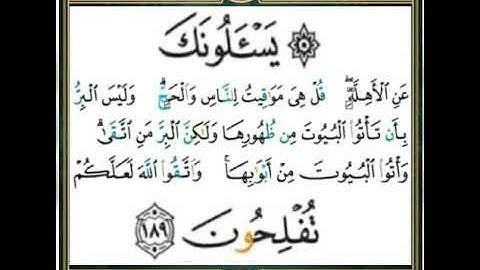 ۞ يَسْـَٔلُونَكَ
عَنِ الْأَهِلَّةِ ۖ قُلْ هِىَ مَوَٰقِيتُ لِلنَّاسِ وَالْحَجِّ ۗ وَلَيْسَ الْبِرُّ
بِأَن تَأْتُوا۟ الْبُيُوتَ مِن ظُهُورِهَا وَلَٰكِنَّ الْبِرَّ مَنِ اتَّقَىٰ ۗ
وَأْتُوا۟ الْبُيُوتَ مِنْ أَبْوَٰبِهَا ۚ وَاتَّقُوا۟ اللَّهَ لَعَلَّكُمْ
تُفْلِحُونَ ١٨٩